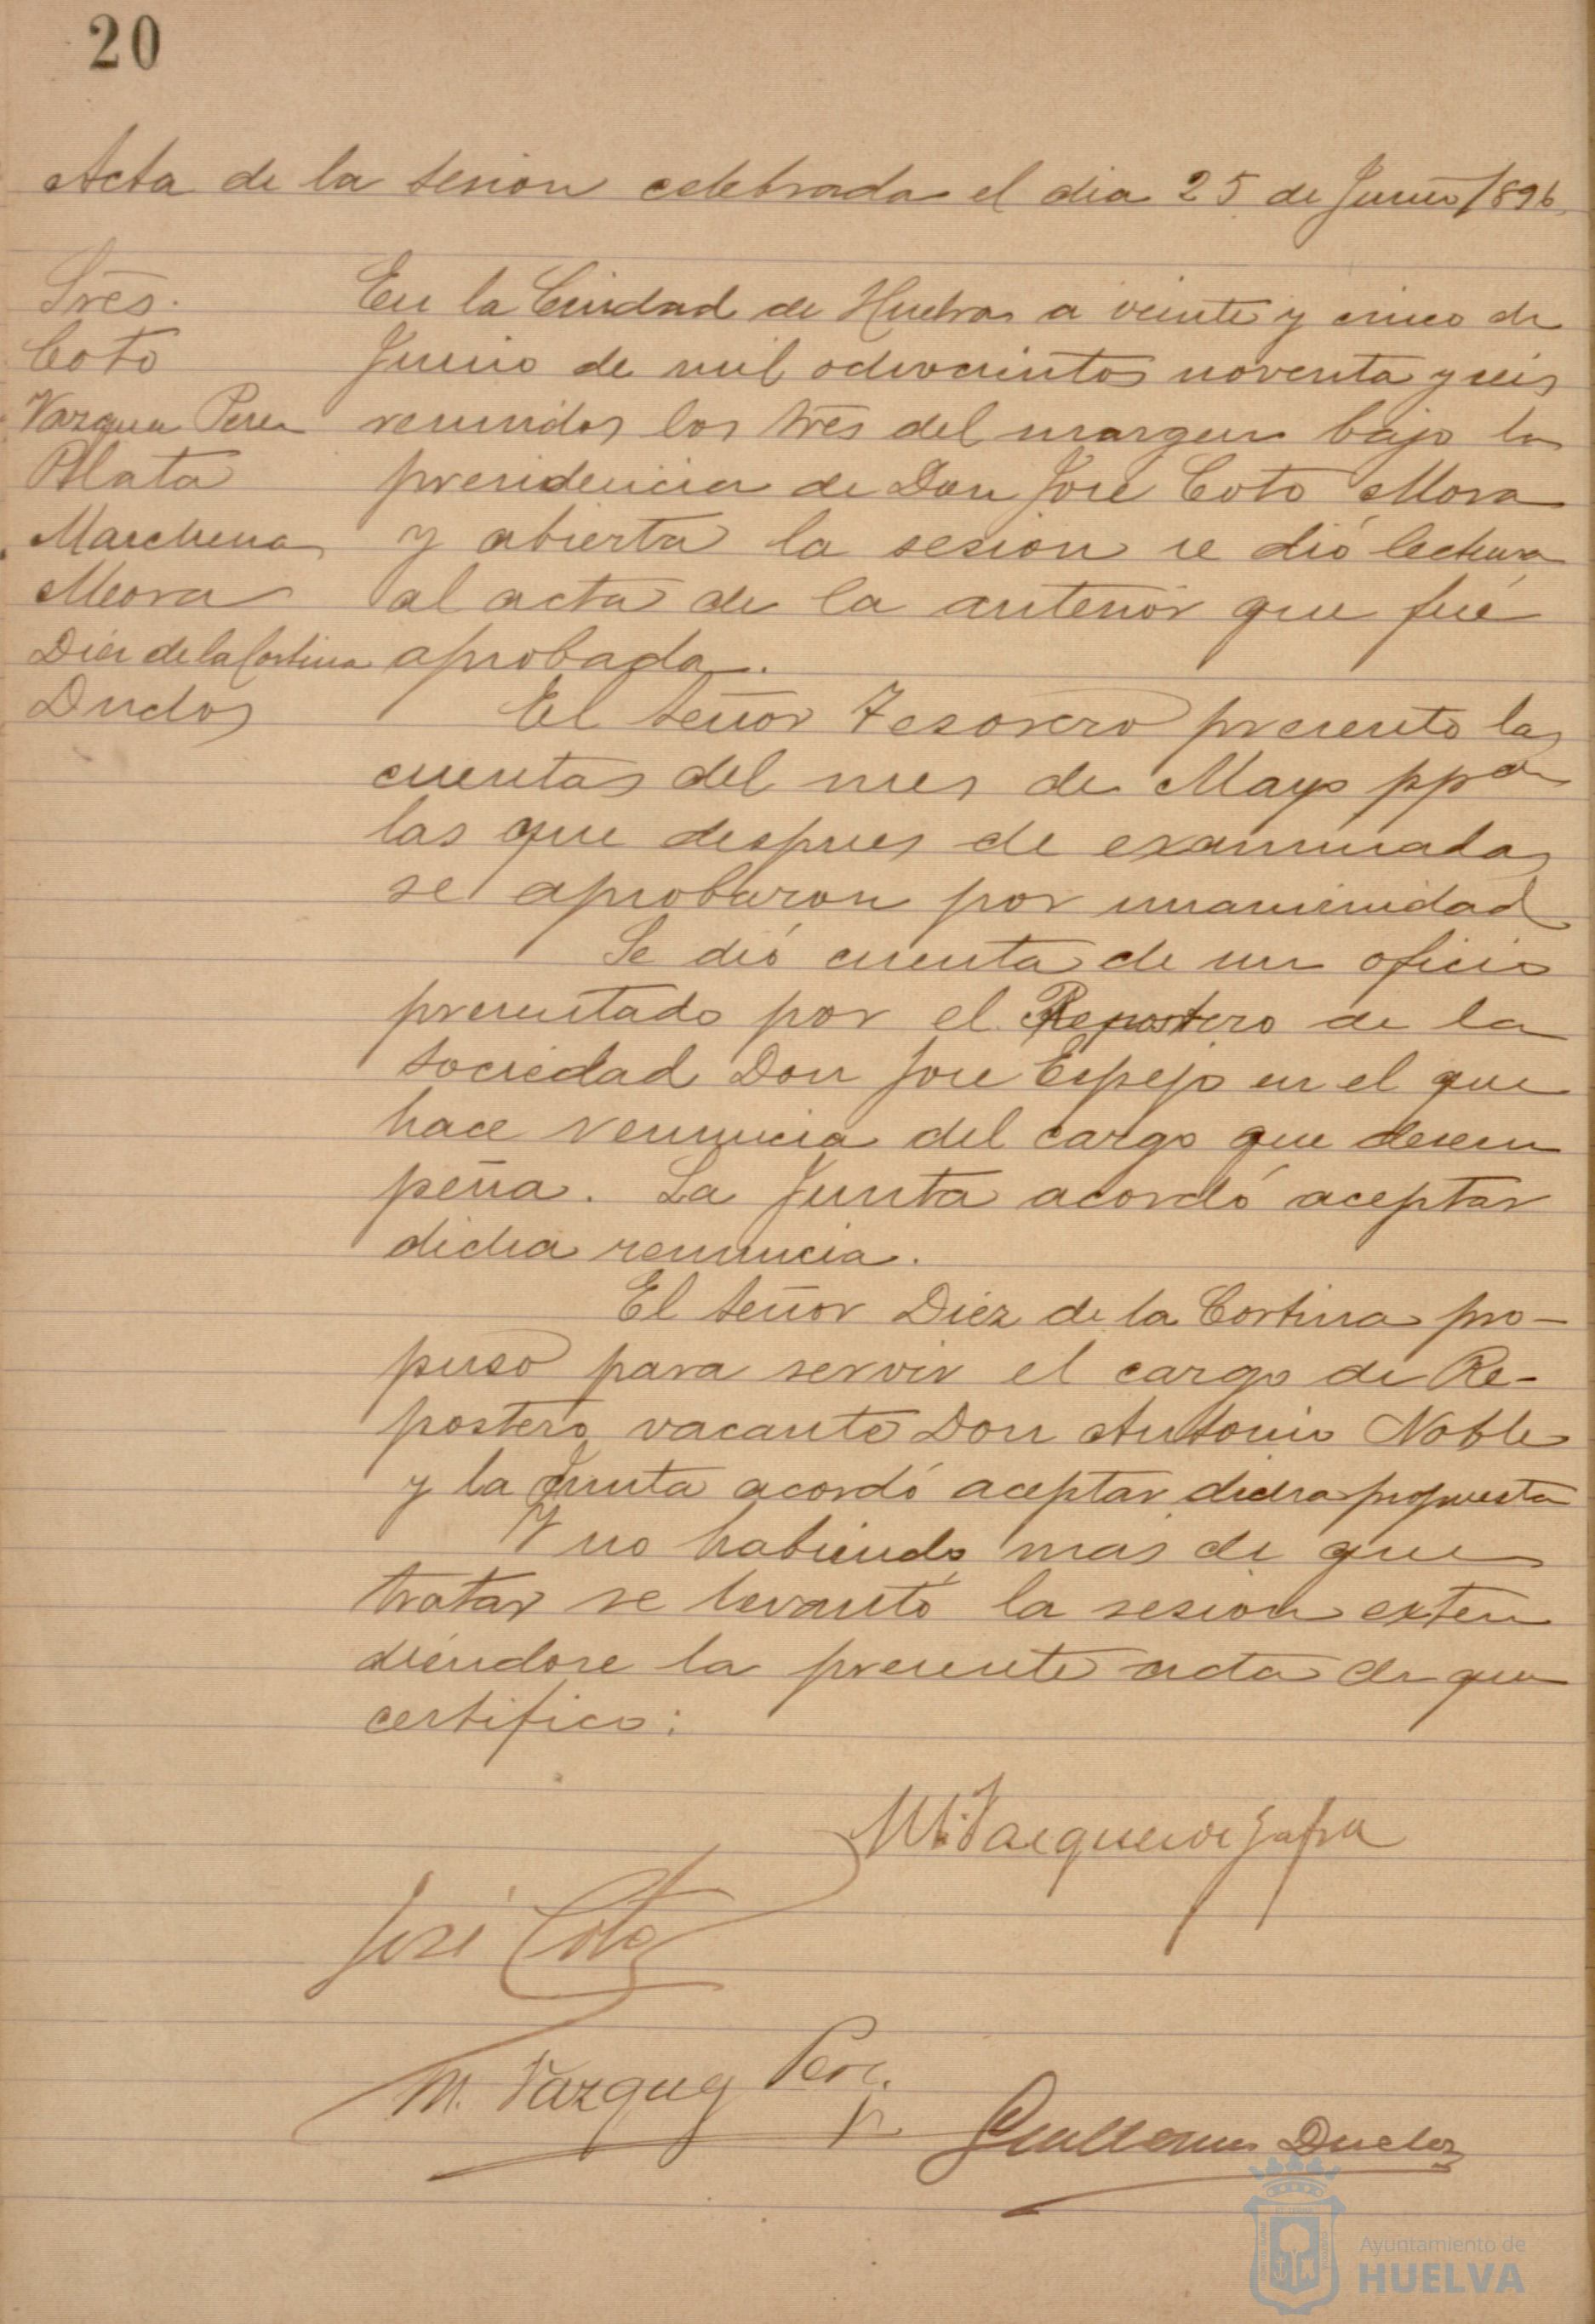 20
Acta de la sesion celebrada el dia 25 de Junio 1896.
Sres.
Coto
Vazquez Perez
Plata
Marchena
Mora
Diez de la Cortina
Duclos
En la Ciudad de Huelva a veinte y cinco de
Junio de mil ochocientos noventa y seis
reunidos los Sres del margen bajo la
presidencia de Don José Coto Mora
y abierta la sesion se dió lectura
al acta de la anterior que fué
aprobada.
El señor Tesorero presento las
cuentas del mes de Mayo ppdo
las que despues de examinadas
se aprobaron por unanimidad
Se dió cuenta de un oficio
presentado por el Repostero de la
sociedad Don Jose Espejo en el que
hace renuncia del cargo que desem
peña. La Junta acordó aceptar
dicha renuncia.
El señor Diez de la Cortina pro-
puso para servir el cargo de Re-
postero vacante Don Antonio Noble
y la Junta acordó aceptar dicha propuesta
Y no habiendo mas de que
tratar se levantó la sesion exten
diéndose la presente acta de que
certifico:
M. Vazquez de Zafra
José Coto
M. Vazquez Perez
Guillermo Duclos
Ayuntamiento de
HUELVA